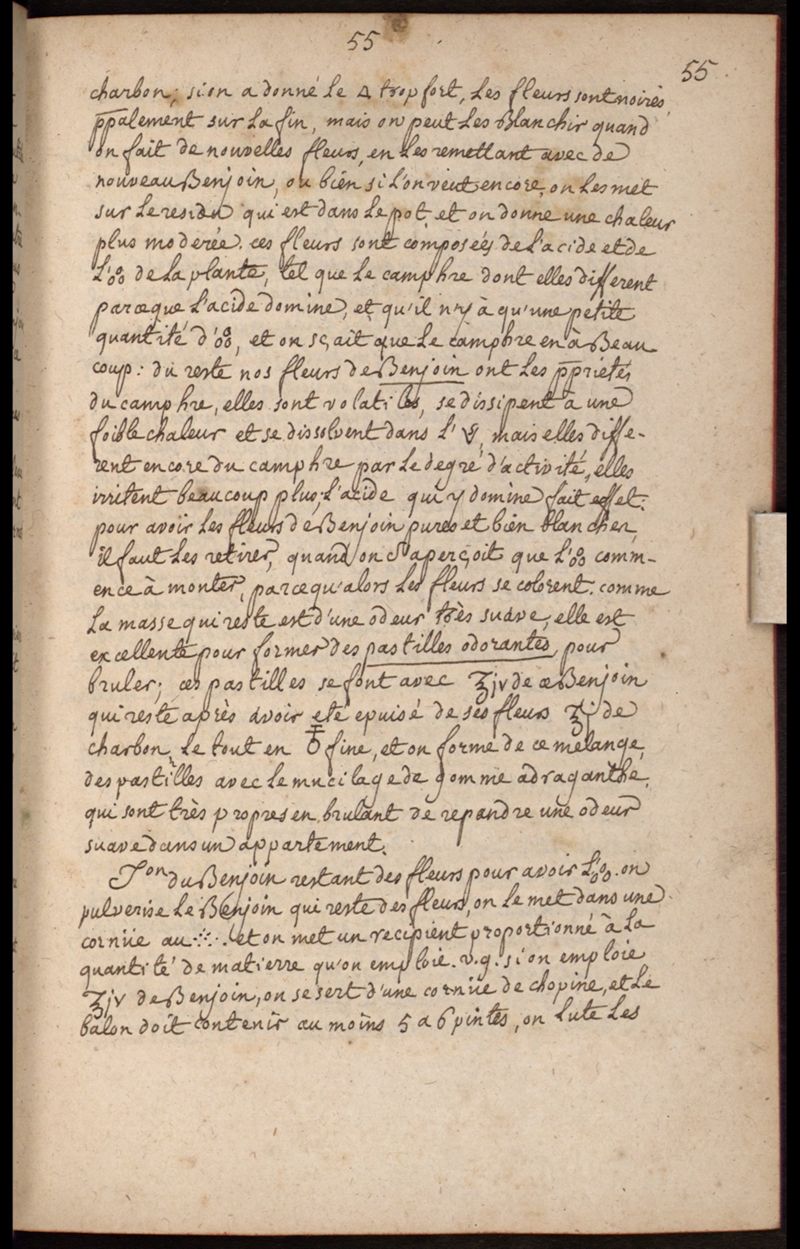 55
55
charbon; si on a donné le 🜂 trop fort, les fleurs sont noires
ppalement sur la fin, mais on peut les Blanchir quand
on fait de nouvelles fleurs, en les remettant avec de
nouveau Benjoin, ou bien si l'on veut encore, on les met
sur le residu qui est dans le pot, et on donne une chaleur
plus moderée. ces fleurs sont composées de l'acide et de
l'🝆 de la plante, tel que le camphre dont elles different
parceque l'acide domine, et qu'il n'y à qu'une petite
quantité d'🝆, et on sçait que le camphre en à Beau
coup: du reste nos fleurs de Benjoin ont les pprietés
du camphre, elles sont volatiles, se dissipent a une
foible chaleur et se dissolvent dans l' mais elles diffe-
rent encore du camphre par le degré d'activité, elles
irritent beaucoup plus, l'acide qui y domine fait effet.
pour avoir les fleurs de Benjoin pures et bien blanches,
il faut les retirer, quand on s'aperçoit que l'🝆 comm-
ence à monter, parcequ'alors les fleurs se colorent. comme
la masse qui reste est d'une odeur très suave, elle est
excellente pour former des pastilles odorantes pour
bruler; ces pastilles se font avec ʒjv de ce Benjoin
qui reste après avoir eté epuisé de ses fleurs ʒj de
charbon, le tout en fine, et on forme de ce mélange,
des pastilles avec le mucilage de gomme adraganthe,
qui sont très propres en brulant de repandre une odeur
suave dans un appartement.
Ton du Benjoin restant des fleurs pour avoir l'🝆. on
pulverise le Benjoin qui reste des fleurs, on le met dans une
cornüe au et on met un recipient proportionné à la
quantité de matierre qu'on emploie. v.g. si on emploie
ʒjv de Benjoin, on se sert d'une cornüe de chopine, et le
balon doit contenir au moins 5 a 6 pintes, on lute les